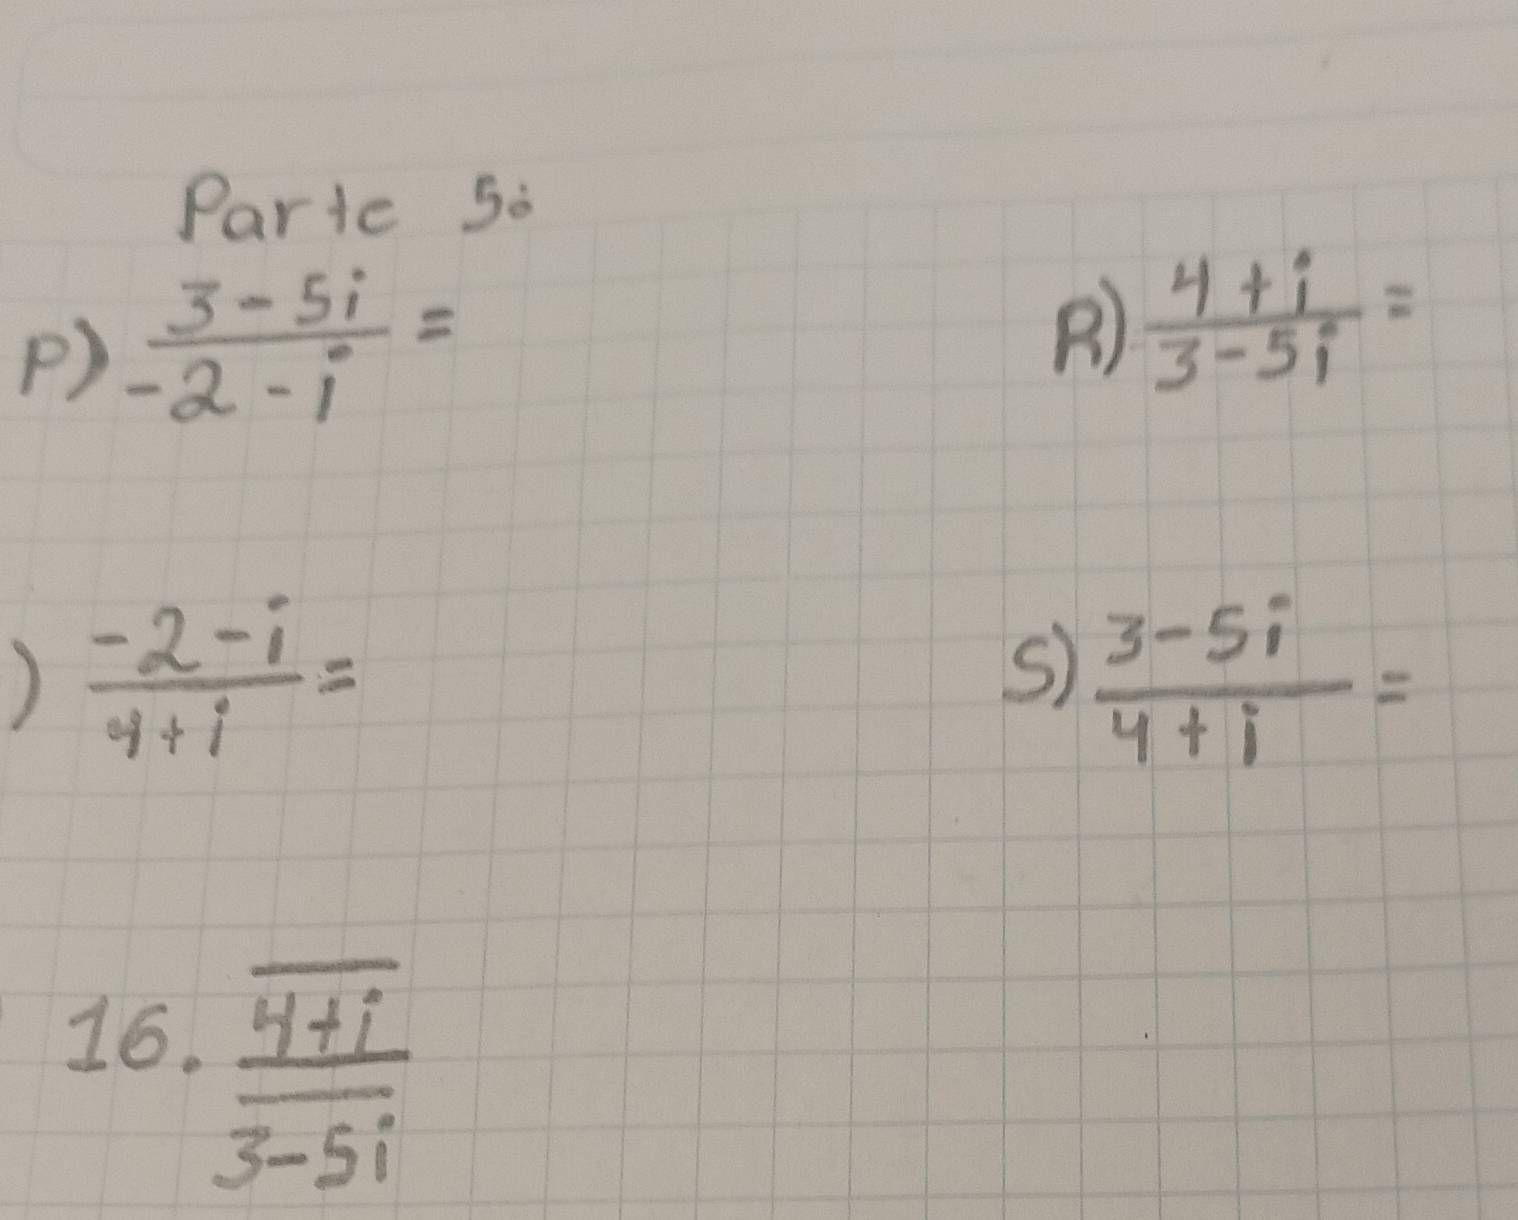 Parte 5:
P) 3-5i / -2-i =
R) 4+i / 3-5i =
) -2-i / 4+i =
S) 3-5i / 4+i =
16. 4̅+̅i̅ / 3̅-̅5̅i̅